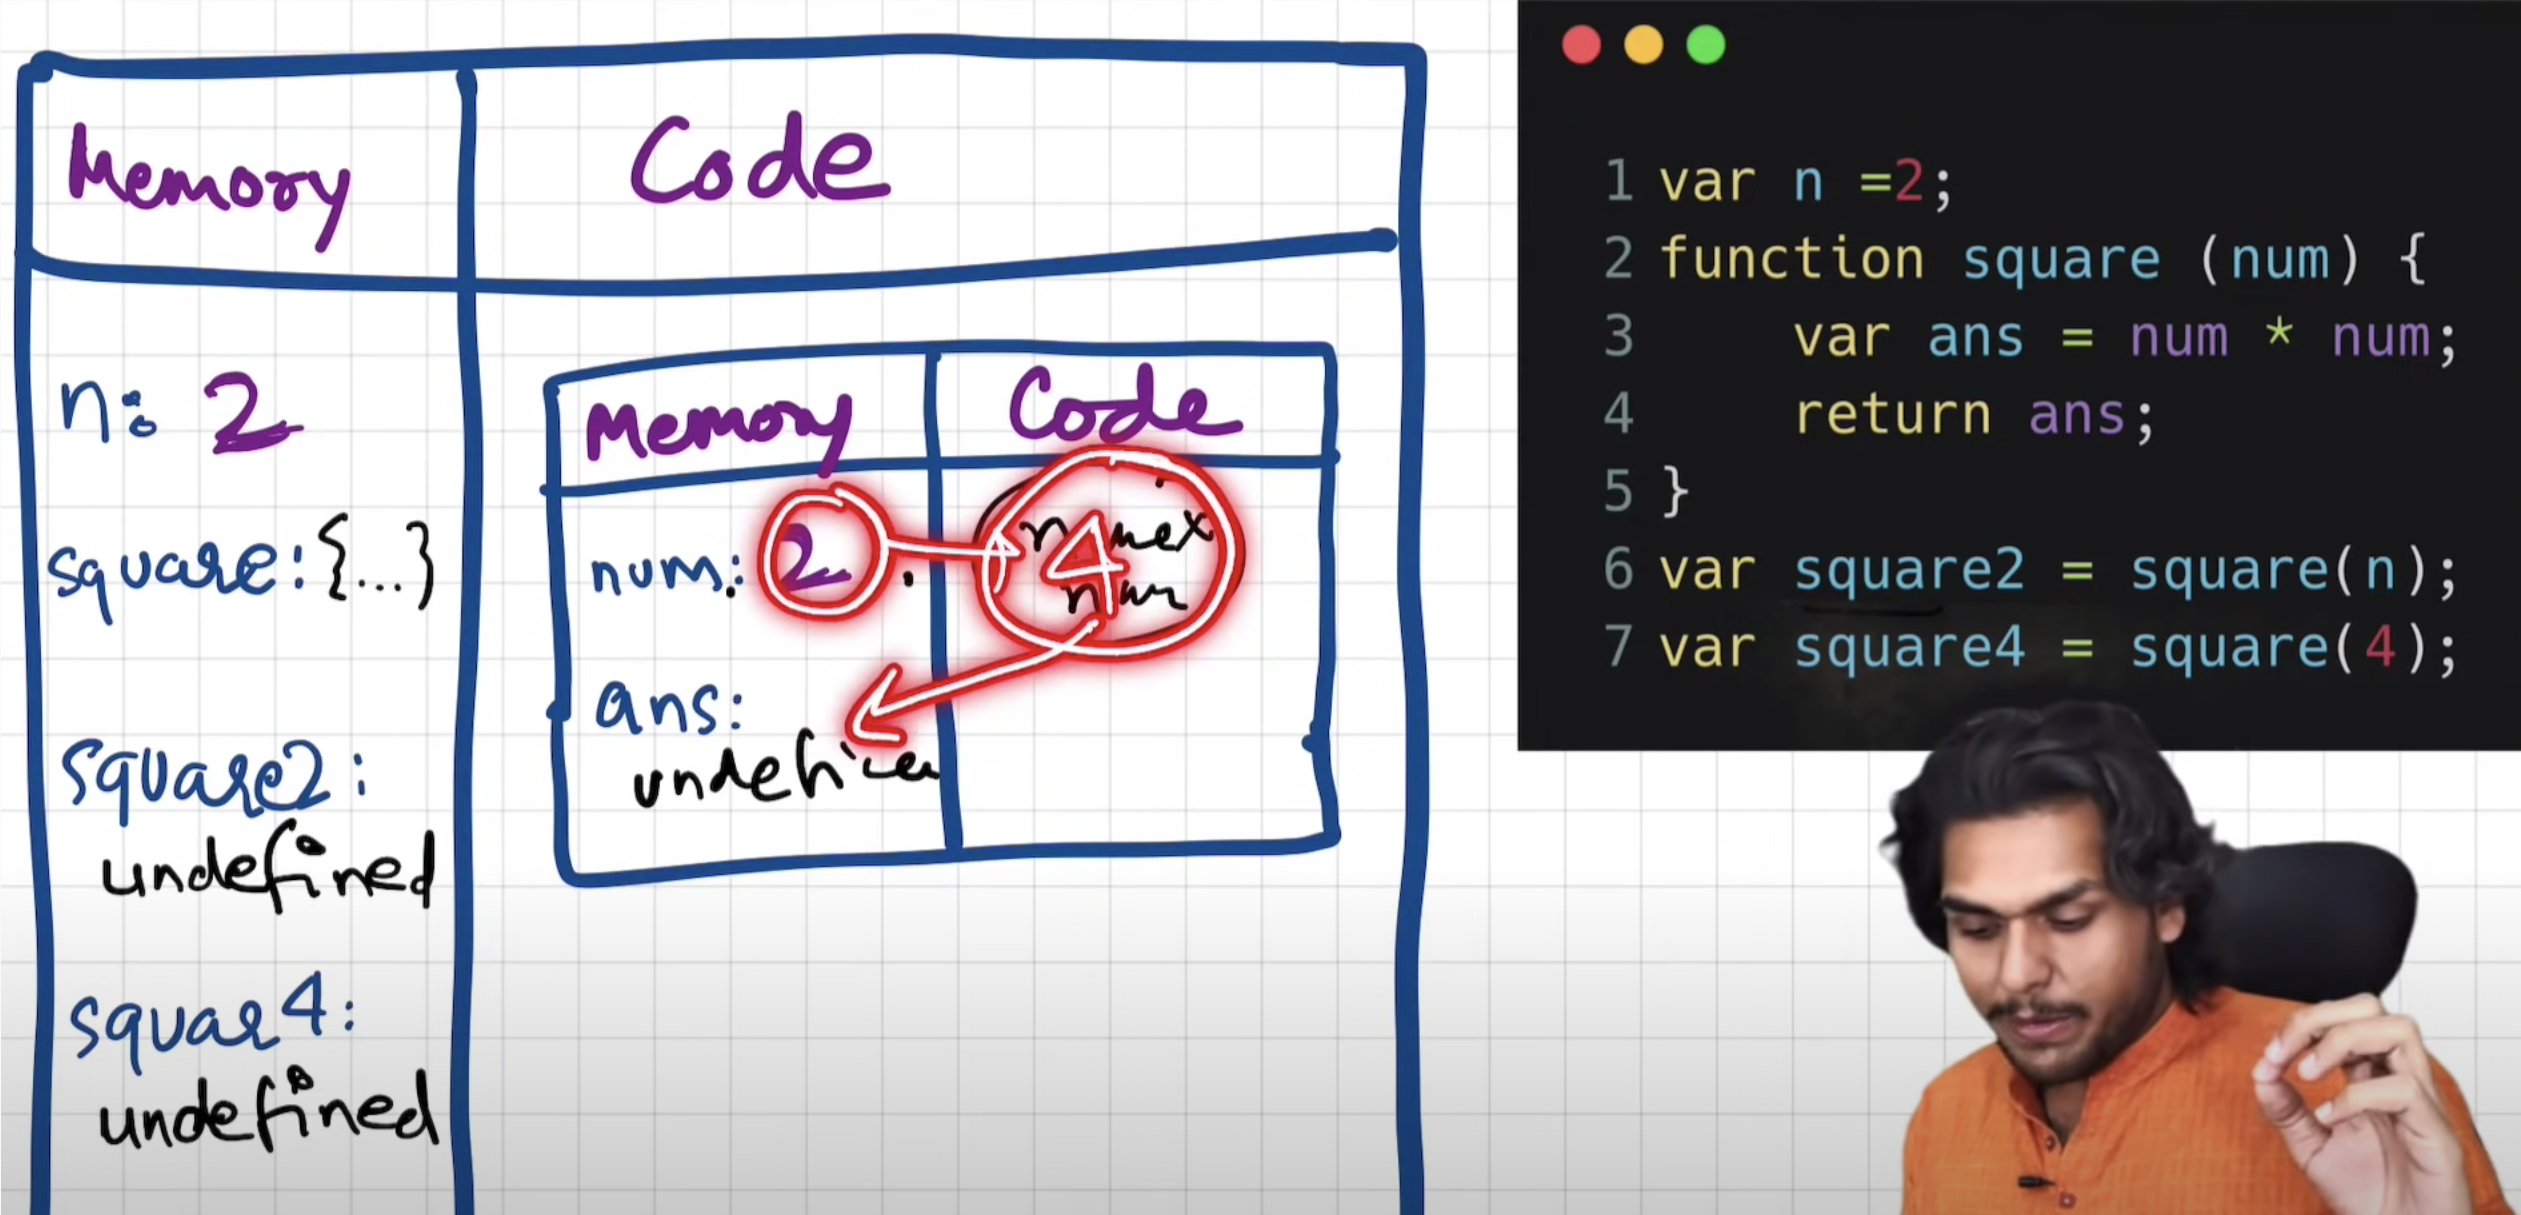 Memory
Code
n: 2
square: {...}
square2:
undefined
squar4:
undefined
Memory
Code
num: 2
num x
num
4
ans:
1 var n =2;
2 function square (num) {
3 var ans = num * num;
4 return ans;
5 }
6 var square2 = square(n);
7 var square4 = square(4);